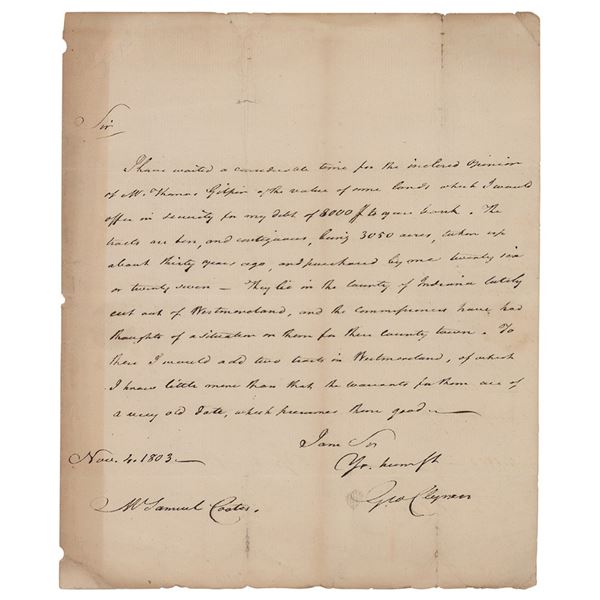 Sir
I have waited a considerable time for the inclosed Opinion
of Mr. Thomas Gilpin of the value of some lands which I would
offer in security for my debt of 8000 to your bank. The
tracts are ten, and contiguous, being 3050 acres, taken up
about thirty years ago, and purchased by me twenty six
or twenty seven — They lie in the county of Indiana lately
cut out of Westmoreland, and the commissioners have had
thoughts of a situation on them for their county town. To
these I would add two tracts in Westmoreland, of which
I know little more than that the warrants for them are of
a very old date, which presumes them good —
I am Sir
Yr. humb St
Nov. 4. 1803 —
Geo Clymer
Mr Samuel Coates.